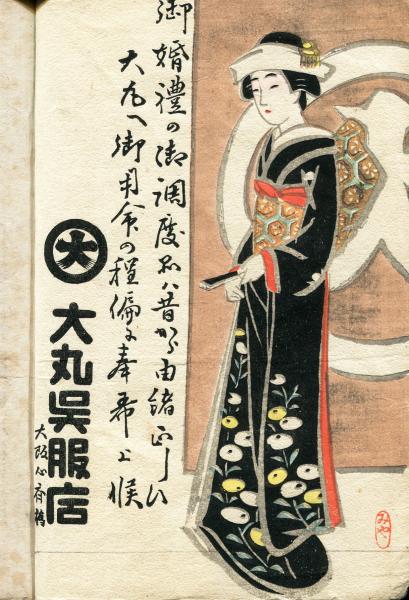 御婚禮の御調度品ハ昔から由緒正しい
大丸へ御用命の程偏に奉希上候
大
大丸呉服店
大阪心斎橋
みやこ